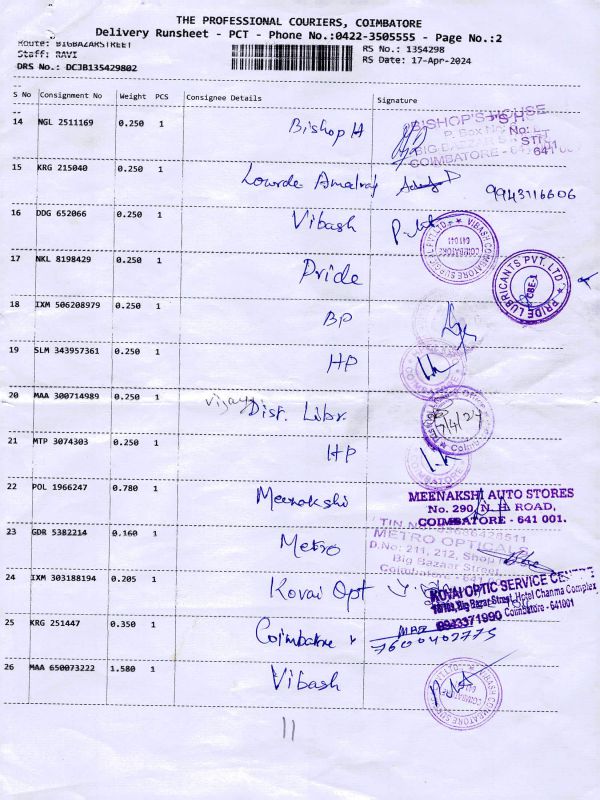 THE PROFESSIONAL COURIERS, COIMBATORE
Delivery Runsheet - PCT - Phone No.:0422-3505555 - Page No.:2
Route: BIGBAZARSTREET
RS No.: 1354298
Staff: RAVI
RS Date: 17-Apr-2024
DRS No.: DCJB135429802
S No Consignment No Weight PCS Consignee Details Signature
14 NGL 2511169 0.250 1 Bishop H
BISHOP'S HOUSE
P. Box No
COIMBATORE - 641
15 KRG 215040 0.250 1 Lourde Amalraj 9943116606
16 DDG 652066 0.250 1 Vibash
VIBASH COIMBATORE
COIMBATORE
641 041
17 NKL 8198429 0.250 1 Pride
PRIDE LUBRICANTS PVT. LTD.
CBE-1
18 IXM 506208979 0.250 1 BP
19 SLM 343957361 0.250 1 HP
20 MAA 300714989 0.250 1 Vijaya Dist. Libr.
17/4/24
21 MTP 3074303 0.250 1 HP
22 POL 1966247 0.780 1 Meenakshi
MEENAKSHI AUTO STORES
No. 290, N. H. ROAD,
COIMBATORE - 641 001.
23 GDR 5382214 0.160 1 Metro
METRO OPTICALS
D.No: 211, 212, Shop
Big Bazaar Street,
Coimbatore - 641
24 IXM 303188194 0.205 1 Kovai Opt
KOVAI OPTIC SERVICE CENTRE
Big Bazar Street, Hotel Chanma Complex
9943371990 Coimbatore - 641001
25 KRG 251447 0.350 1 Coimbatore
7600402775
26 MAA 650073222 1.580 1 Vibash
11